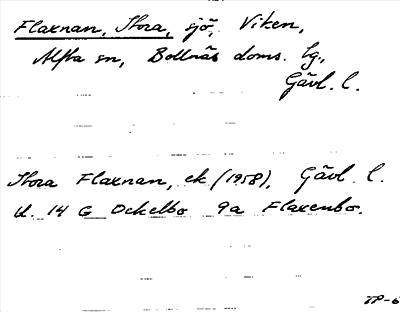 Flaxnan, Stora, sjö, Viken,
Alfta sn, Bollnäs doms. lg.,
Gävl. l.
Stora Flaxnan, ek (1958), Gävl. l.
bl. 14 G Ockelbo 9a Flaxenbo.
TP-6